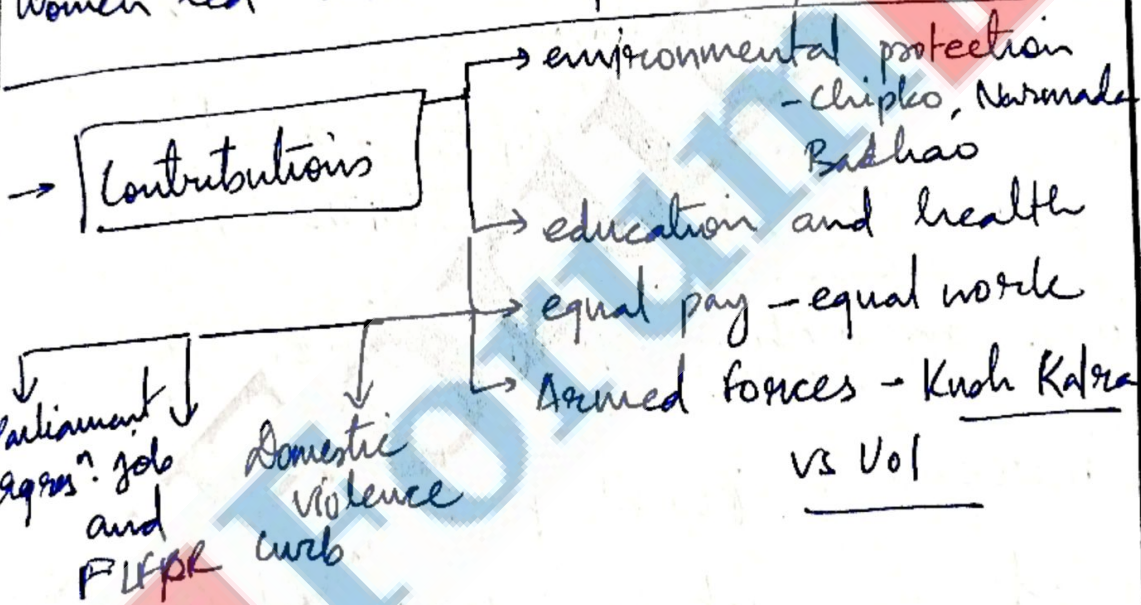 Women led
→ environmental protection
- Chipko, Narmada
Bachao
→ Contributions
→ education and health
→ equal pay - equal work
→ Armed forces - Kush Kalra
vs UoI
Parliament
repres^n. job
and
FLFPR
Domestic
violence
curb
Forum